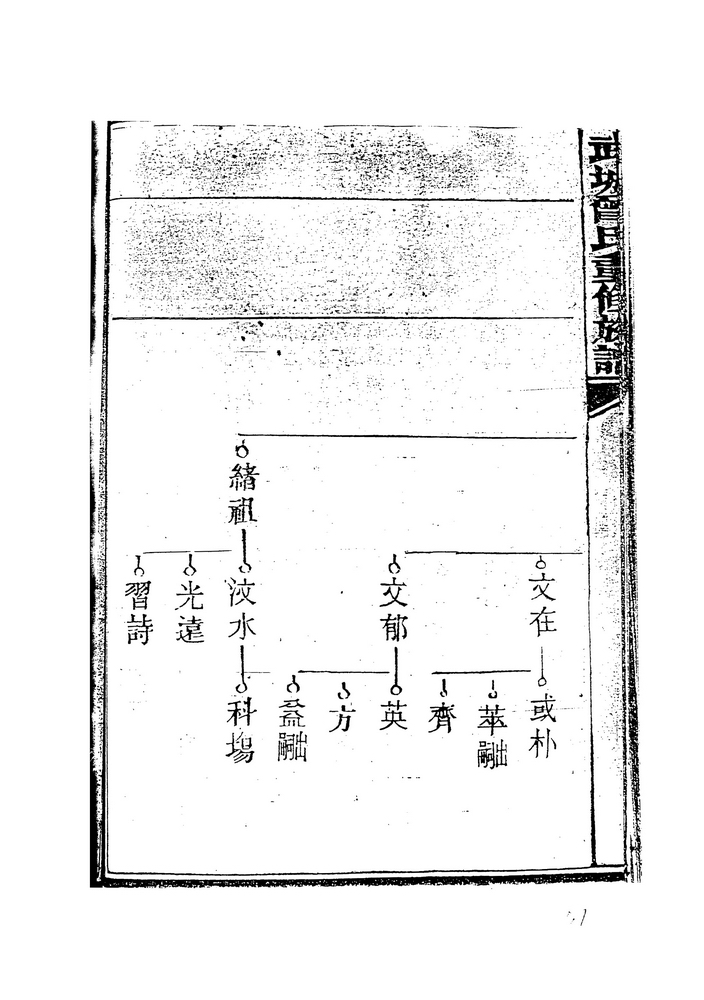 武城曾氏重修族譜
緒祖
文在
文郁
汶水
光遠
習詩
或朴
萃出嗣
齊
英
方
益出嗣
科場